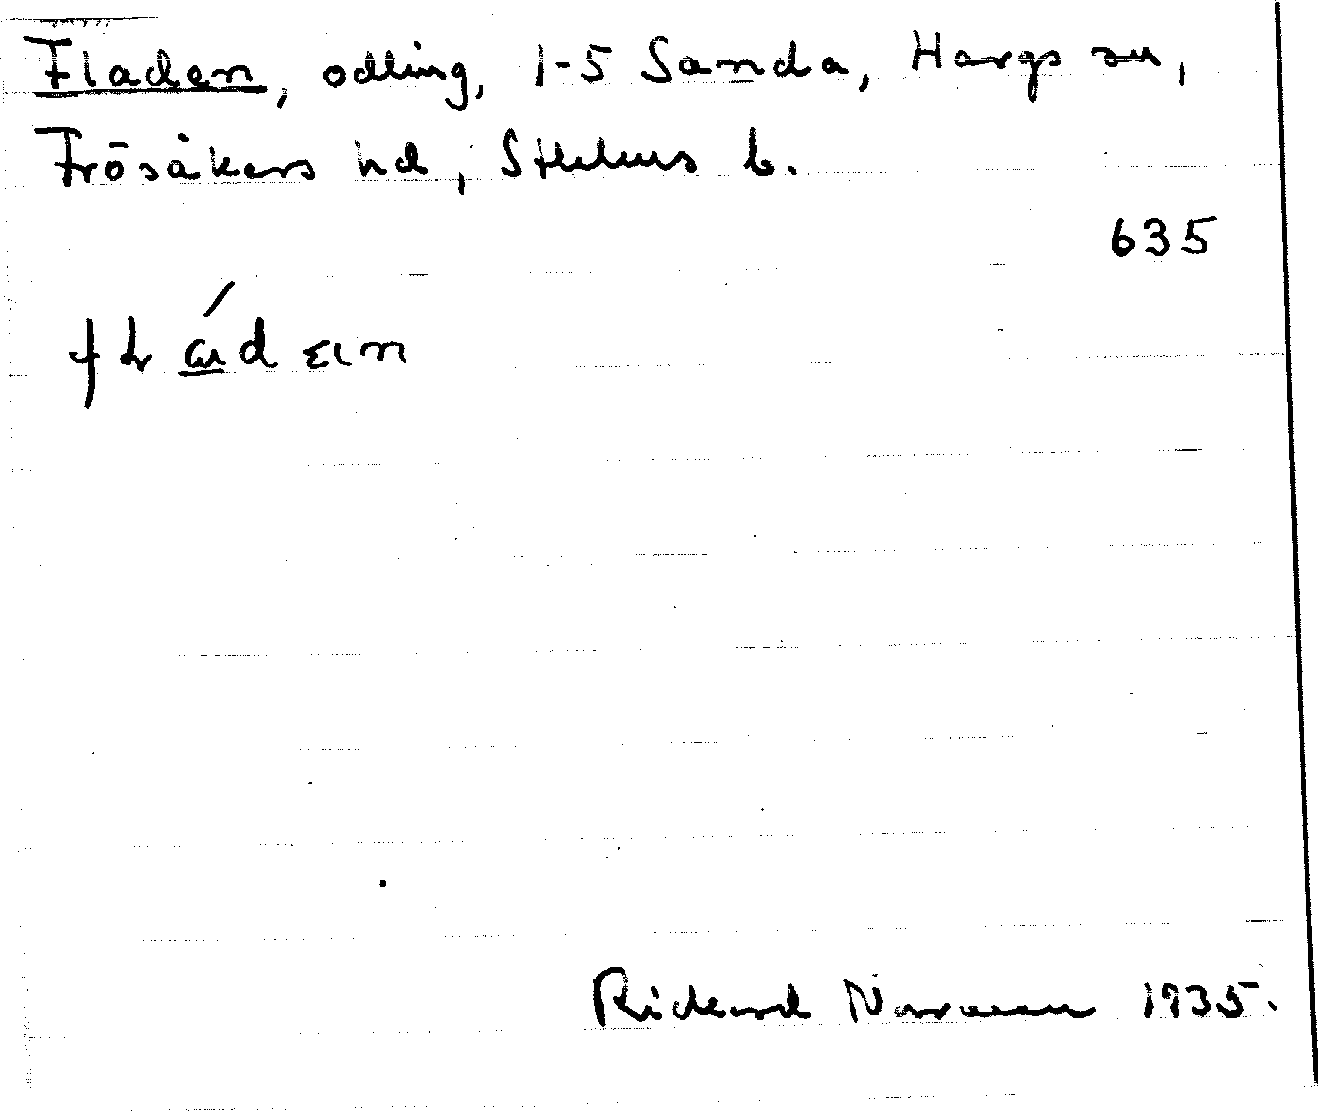 Fladen, odling, 1-5 Sanda, Hargs sn,
Frösåkers hd, Sthlms l.
635
Rickard 1935.